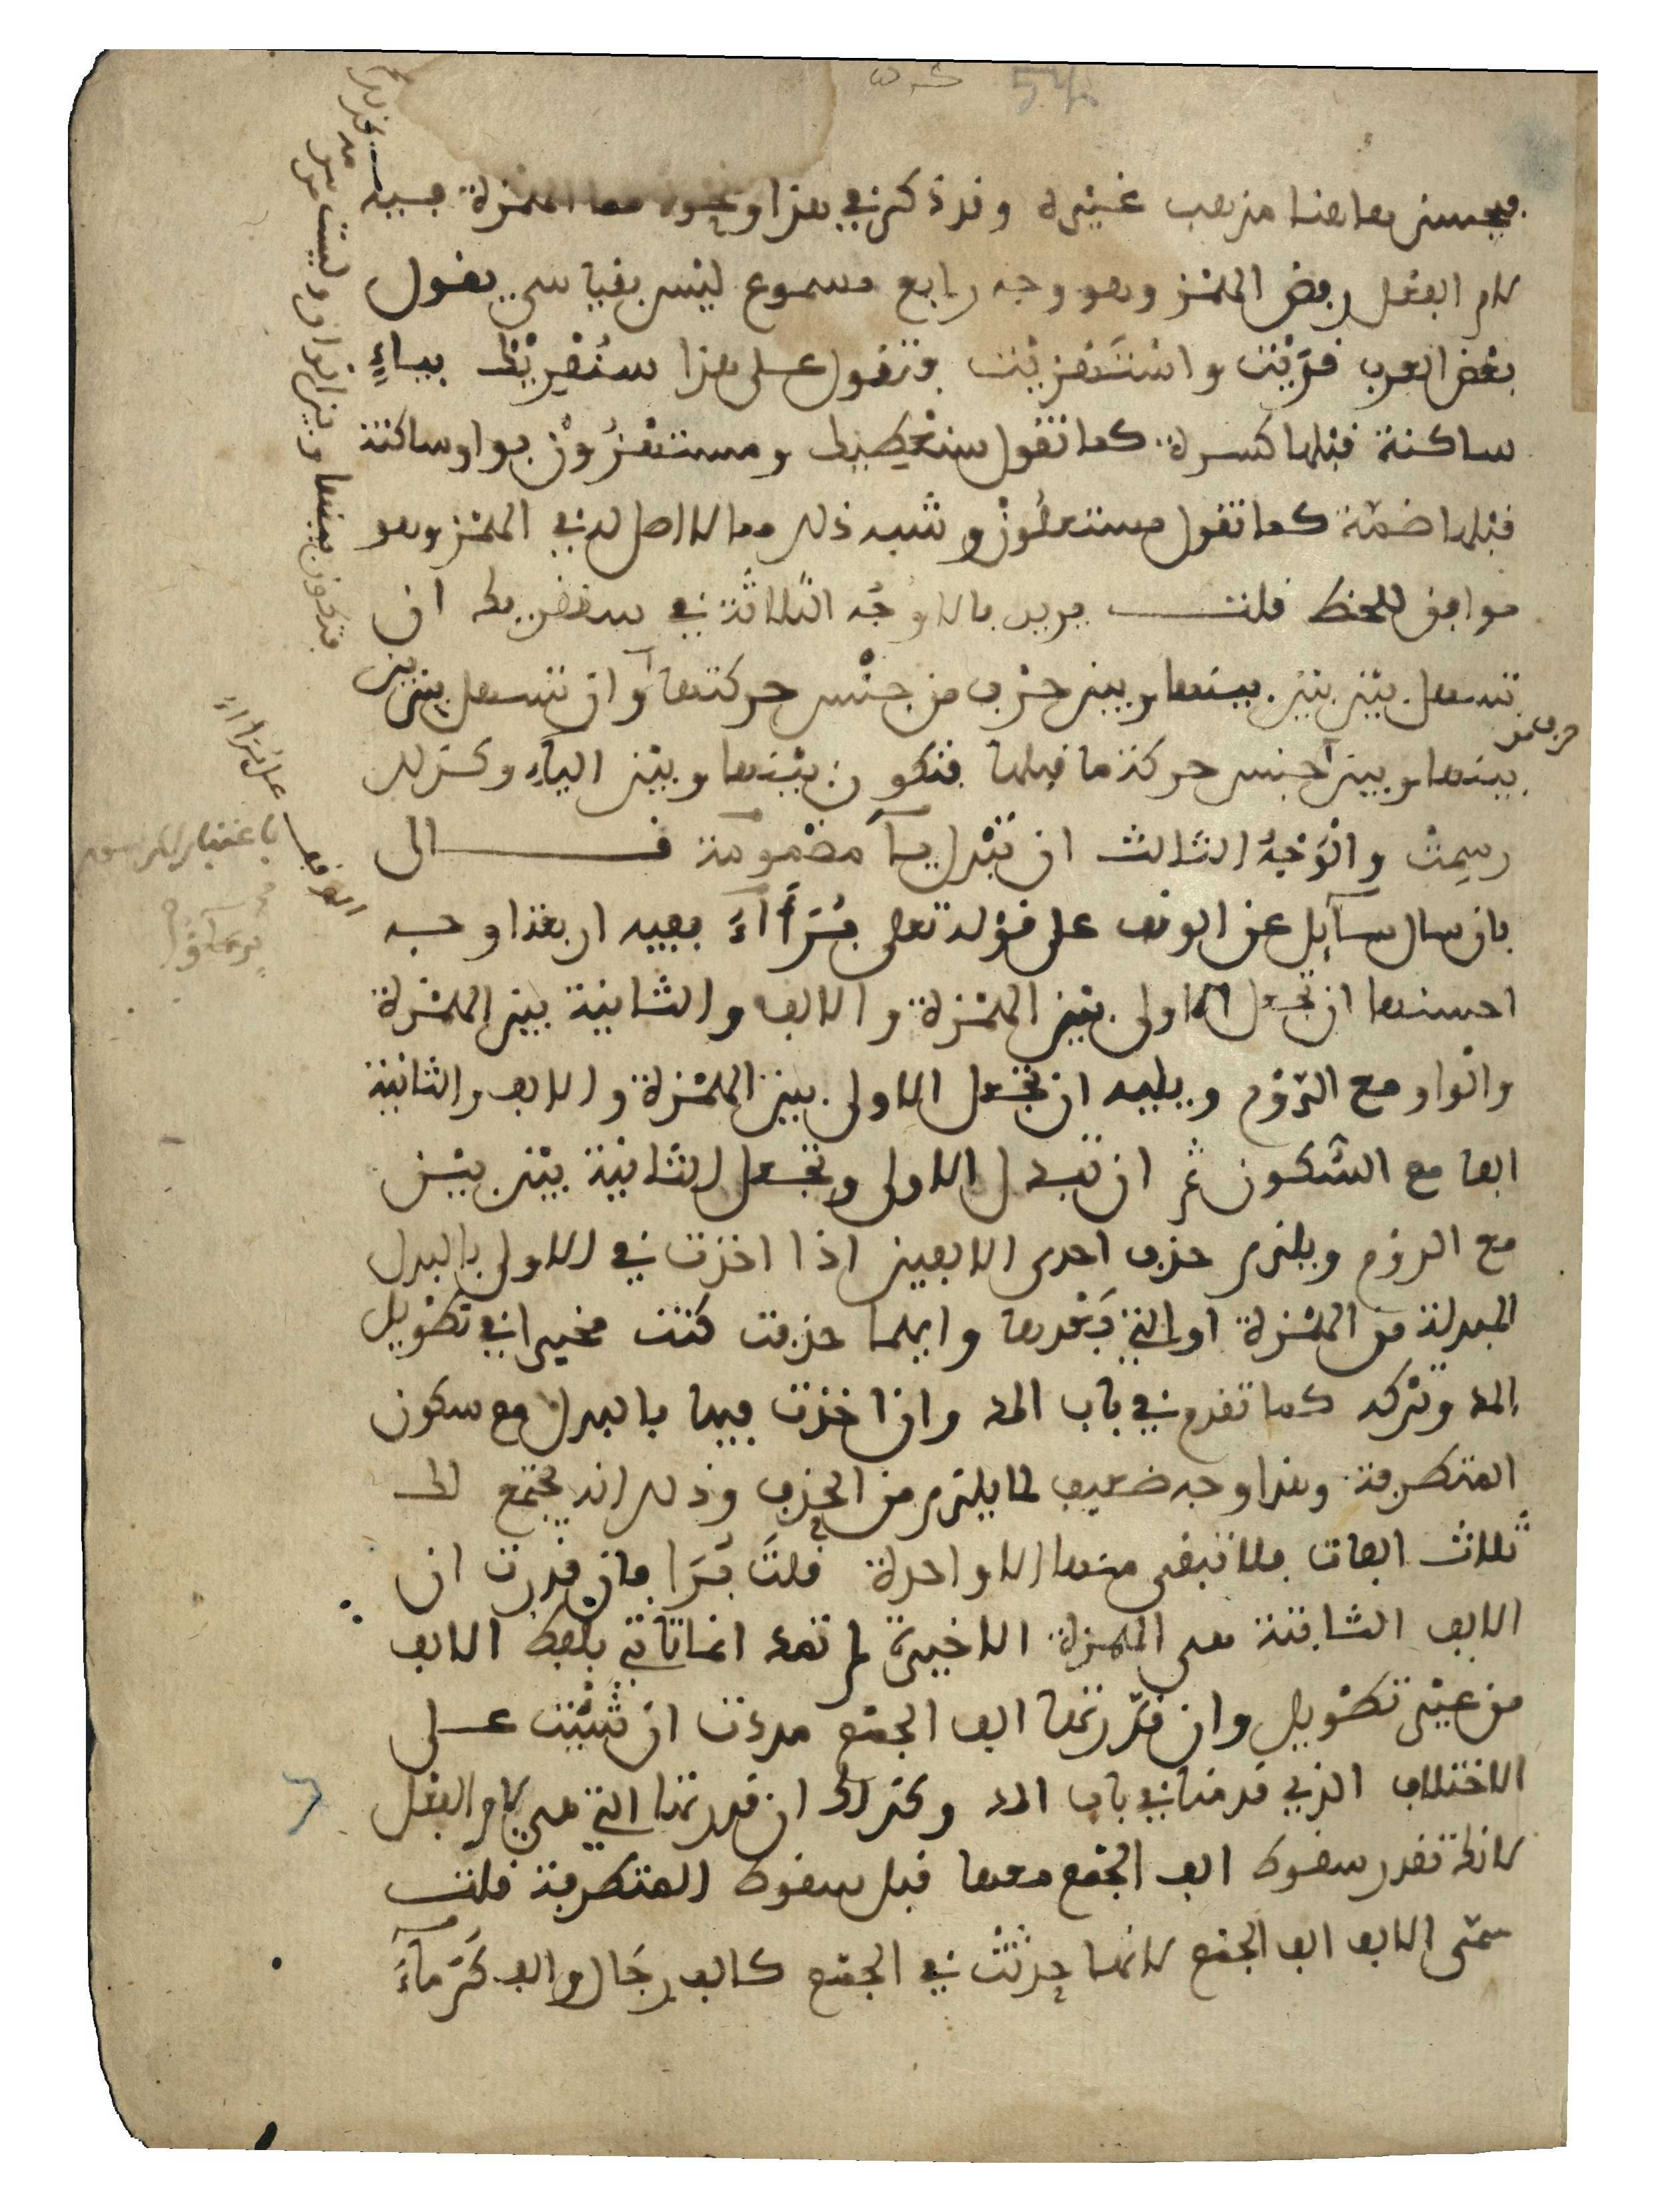 فيحسن هاهنا مذهب غيره وقد ذكر في هذا ونحوه مما الهمزة فيه
لام الفعل رفض الهمز وهو وجه رابع مسموع ليس بقياسي يقول
بعض العرب قرَيْت واسْتَهْزيْت وتقول على هذا سنُقْرِيْك بياءٍ
ساكنة قبلها كسرة كما تقول سنعْطيك ومستهْزُوْن بواو ساكنة
قبلها ضمّة كما تقول مستعلُوْن وشبه ذلك مما لا اصل له في الهمز وهو
موافق للخط قلت يريد بالاوْجُه الثلاثة في سنقريك ان
تسهل بيْن بيْن بينها وبين حرْف من جنْس حركتها او ان تسهل بين بين
بينها وبين حرف من جنس حركة ما قبلها فتكون بيْنها وبيْن الياء وكذلك
رسِمتْ والْوَجْهُ الثالث ان تبْدل يآ مضمومة قال
فان سال سآيل عن الوقف على قوْله تعلى بُرَآءَ ففيه اربعة اوجه
احسنها ان تجعل الاولى بيْن الهمْزة والالف والثانية بين الهمْزة
والْواو مع الرّوْم ويليه ان تجْعل الاولى بين الهمْزة والالف والثانية
الفا مع السّكون ثم ان تبدل الاولى وتجعل الثانية بيْن بيْن
مع الروْم ويلزم حذف احدى الالفين اذا اخذت في الاولى بالبدل
المبدلة من الهمْزة او التي بَعْدها وايهما حذفت كنت مخيرا في تطويل
المد وتركه كما تقدم في باب المد وان اخذت فيها بالبدل مع سكون
المتطرفة وهذا وجه ضعيف لما يلزم من الحذف وذلك انه يجتمع لك
ثلاث الفات فلا تبقى منها الا واحدة قلتَ بُرَا فان قدرت ان
الالف الثابتة هي الهمزة الاخيرة لم تمد انما تاتي بلفظ الالف
من غيْر تطْويل وان قدّرتها الف الجمْع مددت ان شئْت على
الاختلاف الذي قدمنا في باب المد وكذلك ان قدرتها التي هي لام الفعْل
لانك تقدر سقوط الف الجمْع معها قبل سقوط المتطرفة قلت
سمّى الالف الف الجمْع لانها حدثتْ في الجمْع كالف رجَال والف كُرَمآءَ
فتكون بينها وبين الواو وليست
على بُرَآءَ
باعتبار الرسم